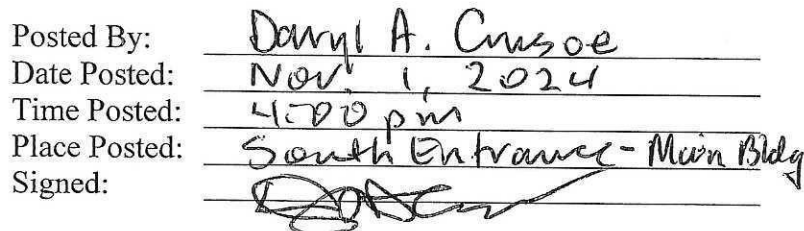 Posted By: Daryl A. Crusoe
Date Posted: Nov. 1, 2024
Time Posted: 4:00 pm
Place Posted: South Entrance - Main Bldg
Signed: